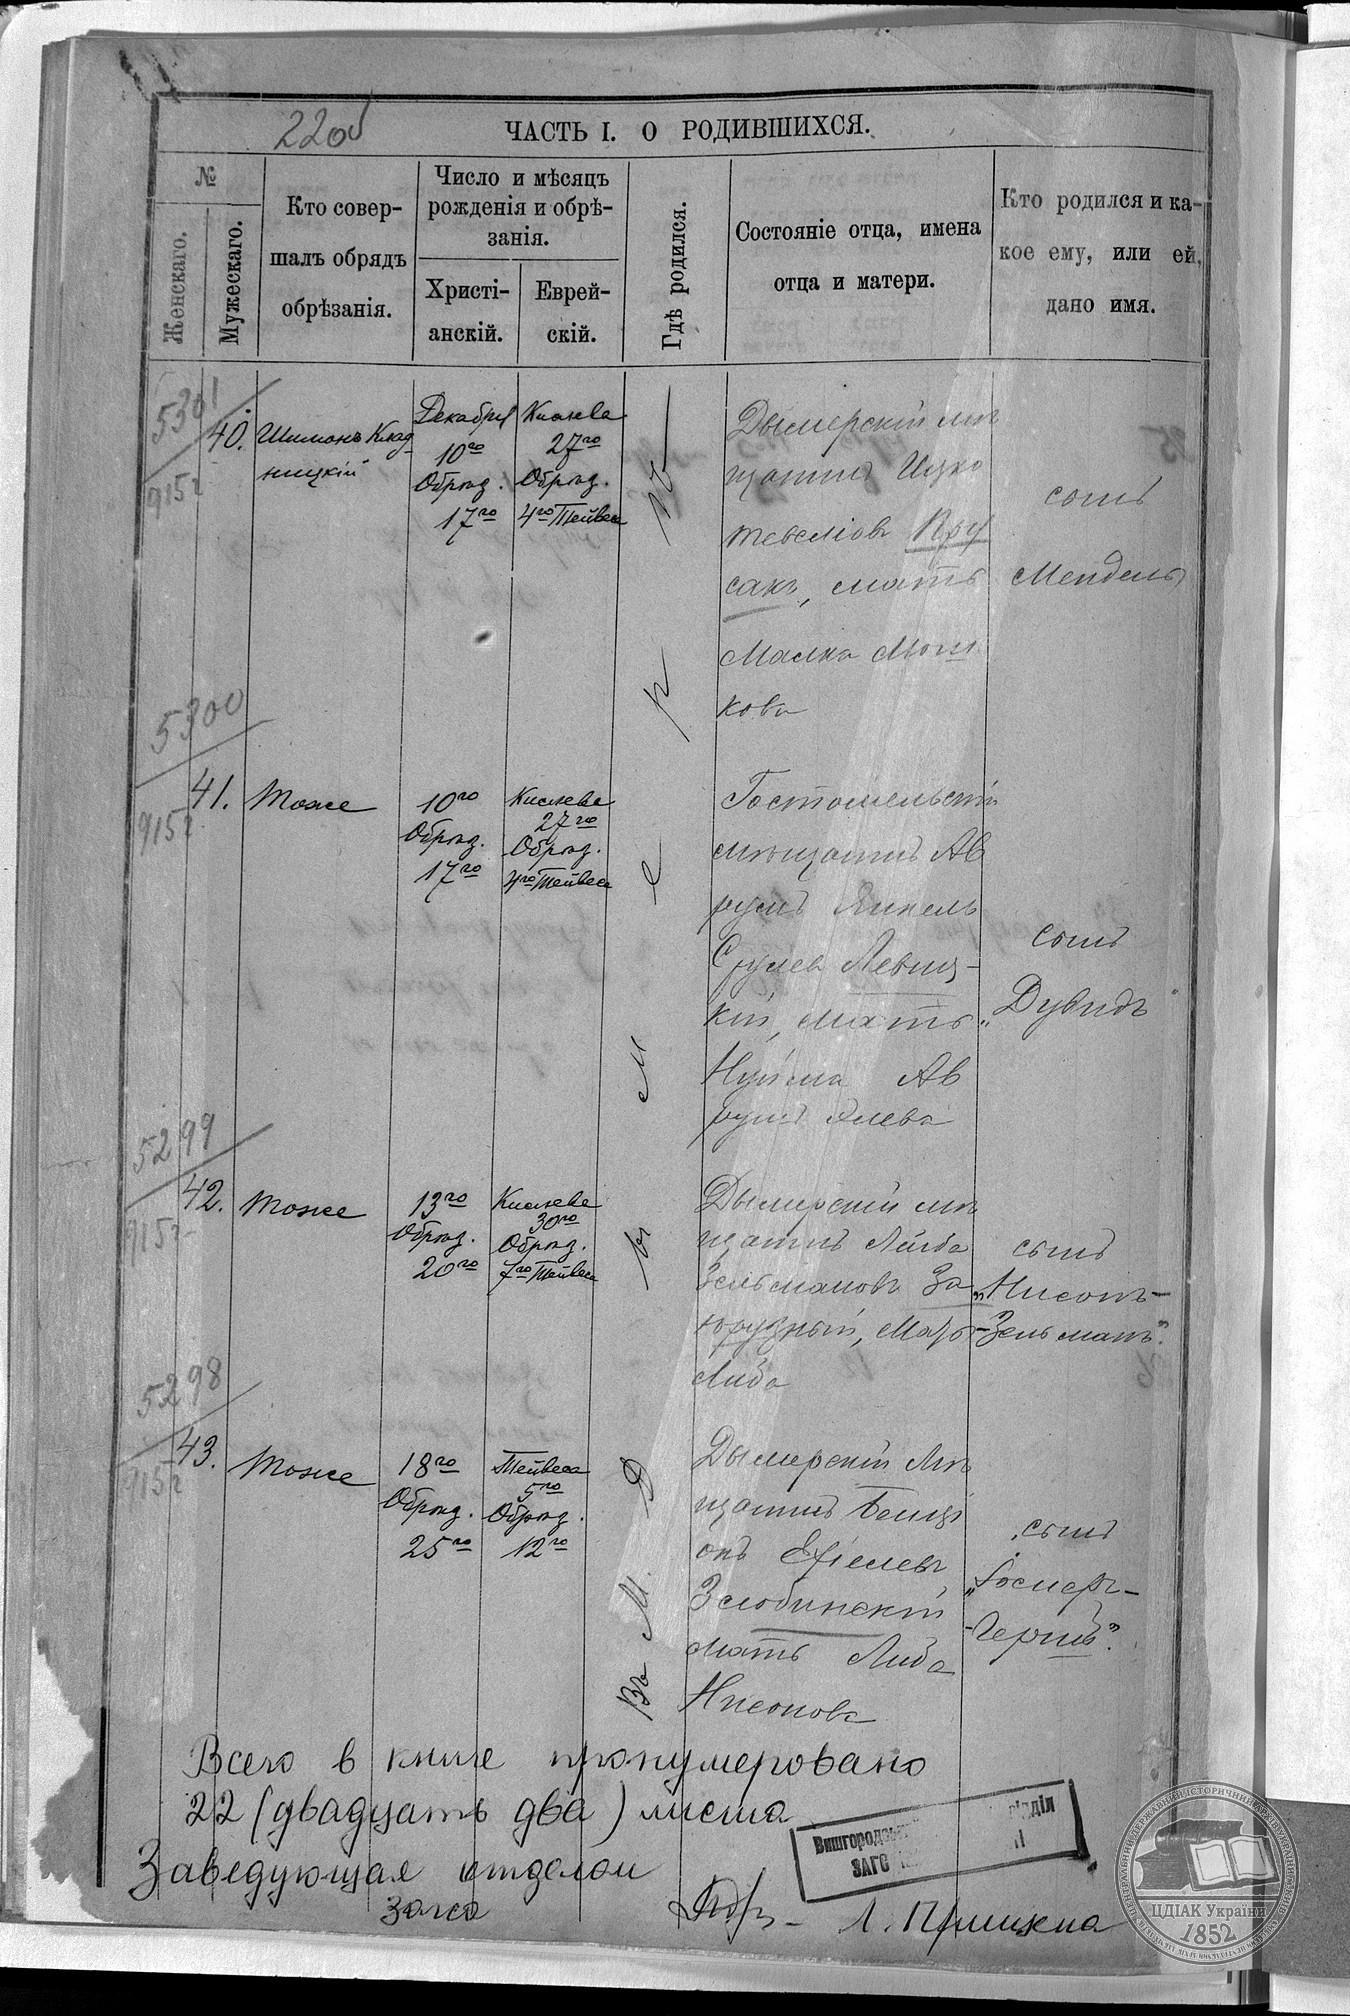 22об
ЧАСТЬ I. О РОДИВШИХСЯ.
№
Женскаго.
Мужескаго.
Кто совер-
шалъ обрядъ
обрѣзанія.
Число и мѣсяцъ
рожденія и обрѣ-
занія.
Христі-
анскій.
Еврей-
скій.
Гдѣ родился.
Состояніе отца, имена
отца и матери.
Кто родился и ка-
кое ему, или ей,
дано имя.
5301
9152
40.
Шимонъ Клад-
ницкій
Декабря
10го
Обрѣз.
17го
Кислева
27го
Обрѣз.
4го Тейвеса
Дымерскій мѣ
щанинъ Ицко
Тевеліовъ Пру
сакъ, мать
Малка Мош
кова
сынъ
Мендель
5300
9152
41.
Тоже
10го
Обрѣз.
17го
Кислева
27го
Обрѣз.
4го Тейвеса
Гостомельскій
мѣщанинъ Ав
румъ Янкель
Срулев Левиц-
кій, мать
Ав
румъ
сынъ
"Дувидъ"
5299
9152
42.
Тоже
13го
Обрѣз.
20го
Кислева
30го
Обрѣз.
7го Тейвеса
Дымерскій мѣ
щанинъ Лейба
Зельмановъ За
мать
Либа
сынъ
"Нисонъ-
Зельманъ".
5298
9152
43.
Тоже
18го
Обрѣз.
25го
Тейвеса
5го
Обрѣз.
12го
Въ М. Дымерѣ
Дымерскій мѣ
щанинъ Бенці
онъ
Злобинскій
мать Либа
Нисонова
сынъ
Всего в книге пронумеровано
22 (двадцать два) листа
Заведующая отделом
загса
Л.
Вишгородс відділ
ЗАГС
ЦДІАК України
1852